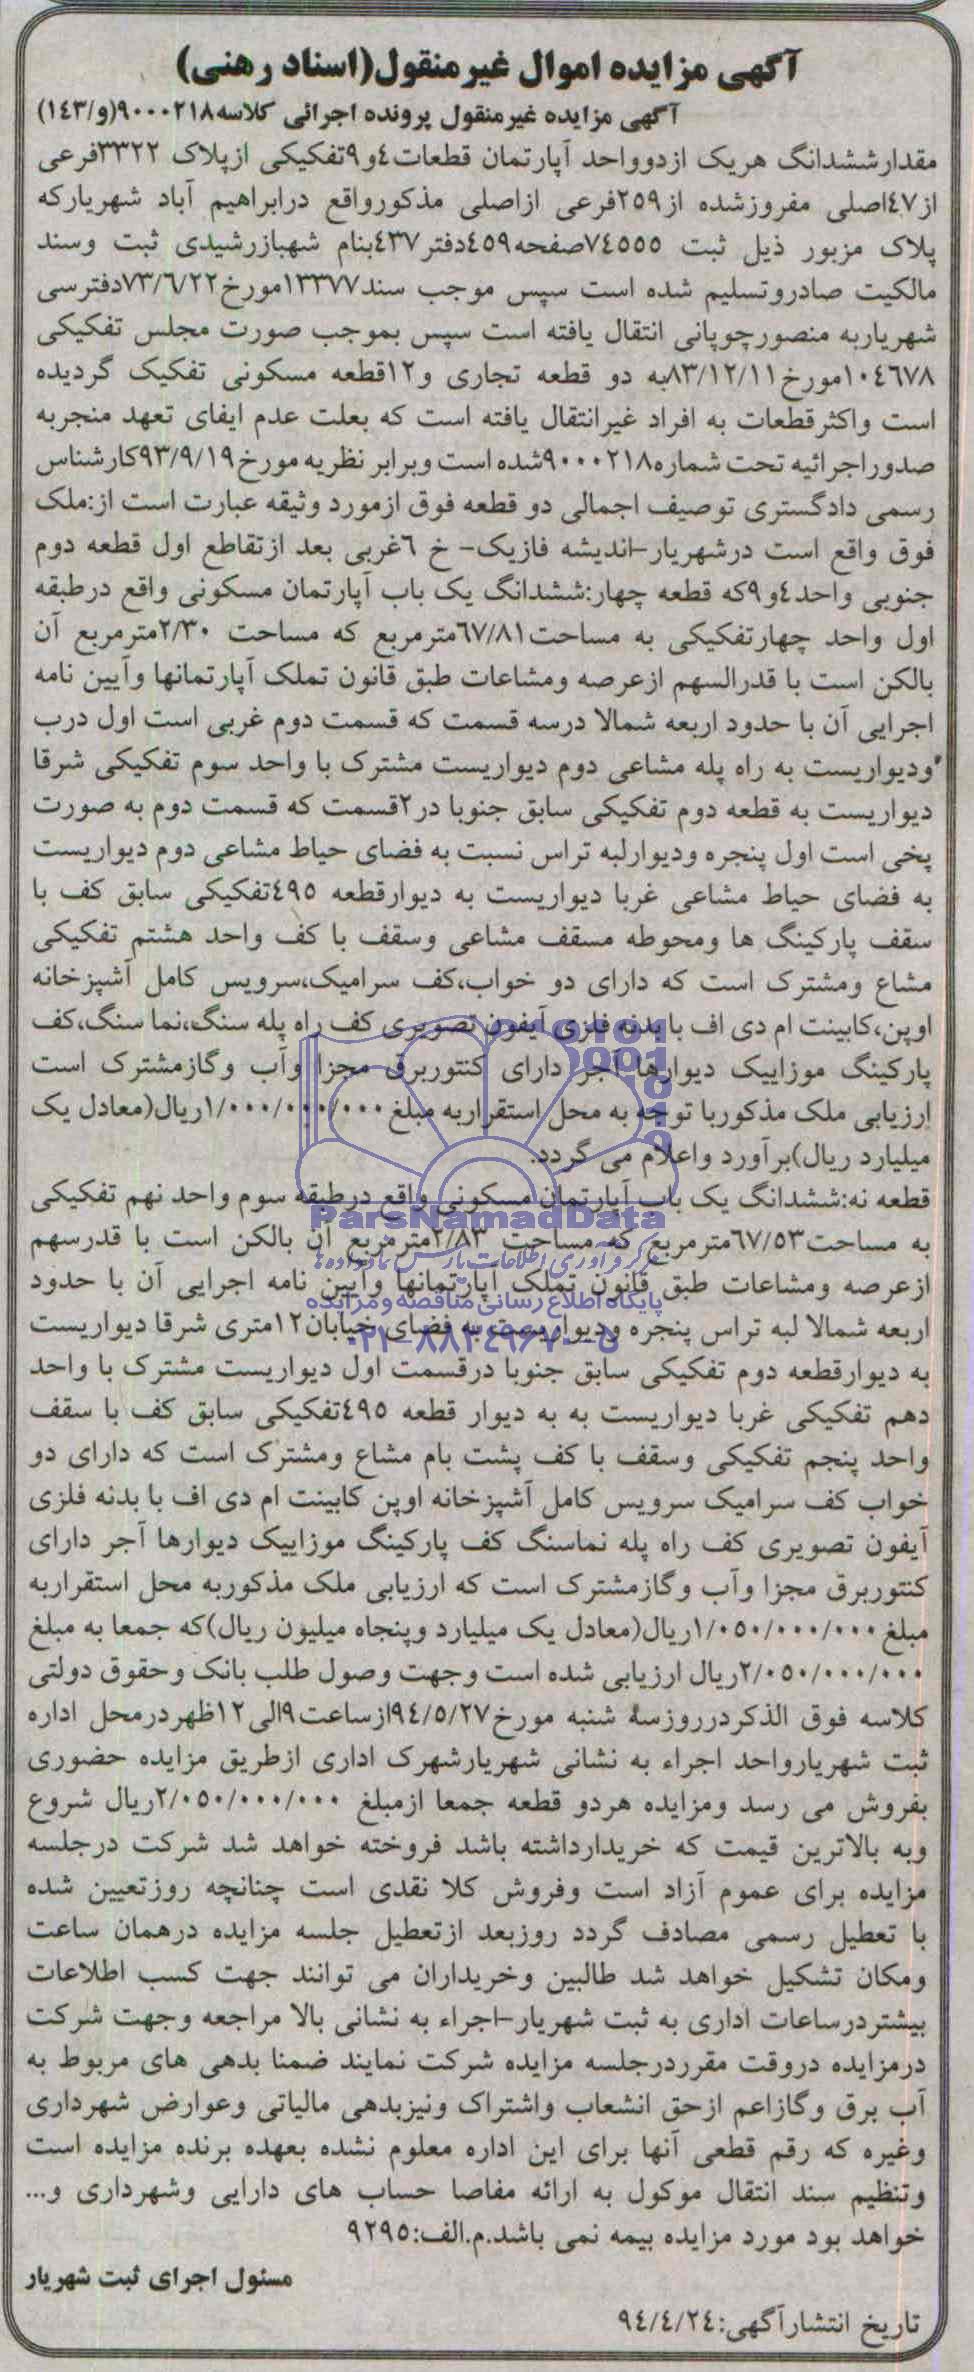 آگهی مزایده اموال غیرمنقول(اسناد رهنی)
آگهی مزایده غیرمنقول پرونده اجرائی کلاسه۹۰۰۰۲۱۸(و/۱٤۳)
مقدارششدانگ هریک ازدوواحد آپارتمان قطعات٤و۹تفکیکی ازپلاک ۳۳۲۲فرعی
از٤۷اصلی مفروزشده از۲۵۹فرعی ازاصلی مذکورواقع درابراهیم آباد شهریارکه
پلاک مزبور ذیل ثبت ۷٤۵۵۵صفحه٤۵۹دفتر٤۳۷بنام شهبازرشیدی ثبت وسند
مالکیت صادروتسلیم شده است سپس موجب سند۱۳۳۷۷مورخ۷۳/٦/۲۲دفترسی
شهریاربه منصورچوپانی انتقال یافته است سپس بموجب صورت مجلس تفکیکی
۱۰٤٦۷۸مورخ۸۳/۱۲/۱۱به دو قطعه تجاری و۱۲قطعه مسکونی تفکیک گردیده
است واکثرقطعات به افراد غیرانتقال یافته است که بعلت عدم ایفای تعهد منجربه
صدوراجرائیه تحت شماره۹۰۰۰۲۱۸شده است وبرابر نظریه مورخ۹۳/۹/۱۹کارشناس
رسمی دادگستری توصیف اجمالی دو قطعه فوق ازمورد وثیقه عبارت است از:ملک
فوق واقع است درشهریار-اندیشه فازیک- خ ٦غربی بعد ازتقاطع اول قطعه دوم
جنوبی واحد٤و۹که قطعه چهار:ششدانگ یک باب آپارتمان مسکونی واقع درطبقه
اول واحد چهارتفکیکی به مساحت٦۷/۸۱مترمربع که مساحت ۲/۳۰مترمربع آن
بالکن است با قدرالسهم ازعرصه ومشاعات طبق قانون تملک آپارتمانها وآیین نامه
اجرایی آن با حدود اربعه شمالا درسه قسمت که قسمت دوم غربی است اول درب
ودیواریست به راه پله مشاعی دوم دیواریست مشترک با واحد سوم تفکیکی شرقا
دیواریست به قطعه دوم تفکیکی سابق جنوبا در۲قسمت که قسمت دوم به صورت
پخی است اول پنجره ودیوارلبه تراس نسبت به فضای حیاط مشاعی دوم دیواریست
به فضای حیاط مشاعی غربا دیواریست به دیوارقطعه ٤۹۵تفکیکی سابق کف با
سقف پارکینگ ها ومحوطه مسقف مشاعی وسقف با کف واحد هشتم تفکیکی
مشاع ومشترک است که دارای دو خواب،کف سرامیک،سرویس کامل آشپزخانه
اوپن،کابینت ام دی اف با بدنه فلزی آیفون تصویری کف راه پله سنگ،نما سنگ،کف
پارکینگ موزاییک دیوارها آجر دارای کنتوربرق مجزا وآب وگازمشترک است
ارزیابی ملک مذکوربا توجه به محل استقراربه مبلغ ۱/۰۰۰/۰۰۰/۰۰۰ریال(معادل یک
میلیارد ریال)برآورد واعلام می گردد.
قطعه نه:ششدانگ یک باب آپارتمان مسکونی واقع درطبقه سوم واحد نهم تفکیکی
ParsNamadData
به مساحت٦۷/۵۳مترمربع که مساحت ۲/۸۳مترمربع آن بالکن است با قدرسهم
مرکز فرآوری اطلاعات پارس نماد داده ها
ازعرصه ومشاعات طبق قانون تملک آپارتمانها وآیین نامه اجرایی آن با حدود
پایگاه اطلاع رسانی مناقصه و مزایده
اربعه شمالا لبه تراس پنجره ودیواریست به فضای خیابان۱۲متری شرقا دیواریست
۰۲۱-۸۸۳٤۹٦۷۰-۵
به دیوارقطعه دوم تفکیکی سابق جنوبا درقسمت اول دیواریست مشترک با واحد
دهم تفکیکی غربا دیواریست به به دیوار قطعه ٤۹۵تفکیکی سابق کف با سقف
واحد پنجم تفکیکی وسقف با کف پشت بام مشاع ومشترک است که دارای دو
خواب کف سرامیک سرویس کامل آشپزخانه اوپن کابینت ام دی اف با بدنه فلزی
آیفون تصویری کف راه پله نماسنگ کف پارکینگ موزاییک دیوارها آجر دارای
کنتوربرق مجزا وآب وگازمشترک است که ارزیابی ملک مذکوربه محل استقراربه
مبلغ ۱/۰۵۰/۰۰۰/۰۰۰ریال(معادل یک میلیارد وپنجاه میلیون ریال)که جمعا به مبلغ
۲/۰۵۰/۰۰۰/۰۰۰ریال ارزیابی شده است وجهت وصول طلب بانک وحقوق دولتی
کلاسه فوق الذکردرروزسه شنبه مورخ۹٤/۵/۲۷ازساعت۹الی۱۲ظهردرمحل اداره
ثبت شهریارواحد اجراء به نشانی شهریارشهرک اداری ازطریق مزایده حضوری
بفروش می رسد ومزایده هردو قطعه جمعا ازمبلغ ۲/۰۵۰/۰۰۰/۰۰۰ریال شروع
وبه بالاترین قیمت که خریدارداشته باشد فروخته خواهد شد شرکت درجلسه
مزایده برای عموم آزاد است وفروش کلا نقدی است چنانچه روزتعیین شده
با تعطیل رسمی مصادف گردد روزبعد ازتعطیل جلسه مزایده درهمان ساعت
ومکان تشکیل خواهد شد طالبین وخریداران می توانند جهت کسب اطلاعات
بیشتردرساعات اداری به ثبت شهریار-اجراء به نشانی بالا مراجعه وجهت شرکت
درمزایده دروقت مقرردرجلسه مزایده شرکت نمایند ضمنا بدهی های مربوط به
آب برق وگازاعم ازحق انشعاب واشتراک ونیزبدهی مالیاتی وعوارض شهرداری
وغیره که رقم قطعی آنها برای این اداره معلوم نشده بعهده برنده مزایده است
وتنظیم سند انتقال موکول به ارائه مفاصا حساب های دارایی وشهرداری و...
خواهد بود مورد مزایده بیمه نمی باشد.م.الف:۹۲۹۵
مسئول اجرای ثبت شهریار
تاریخ انتشارآگهی:۹٤/٤/۲٤